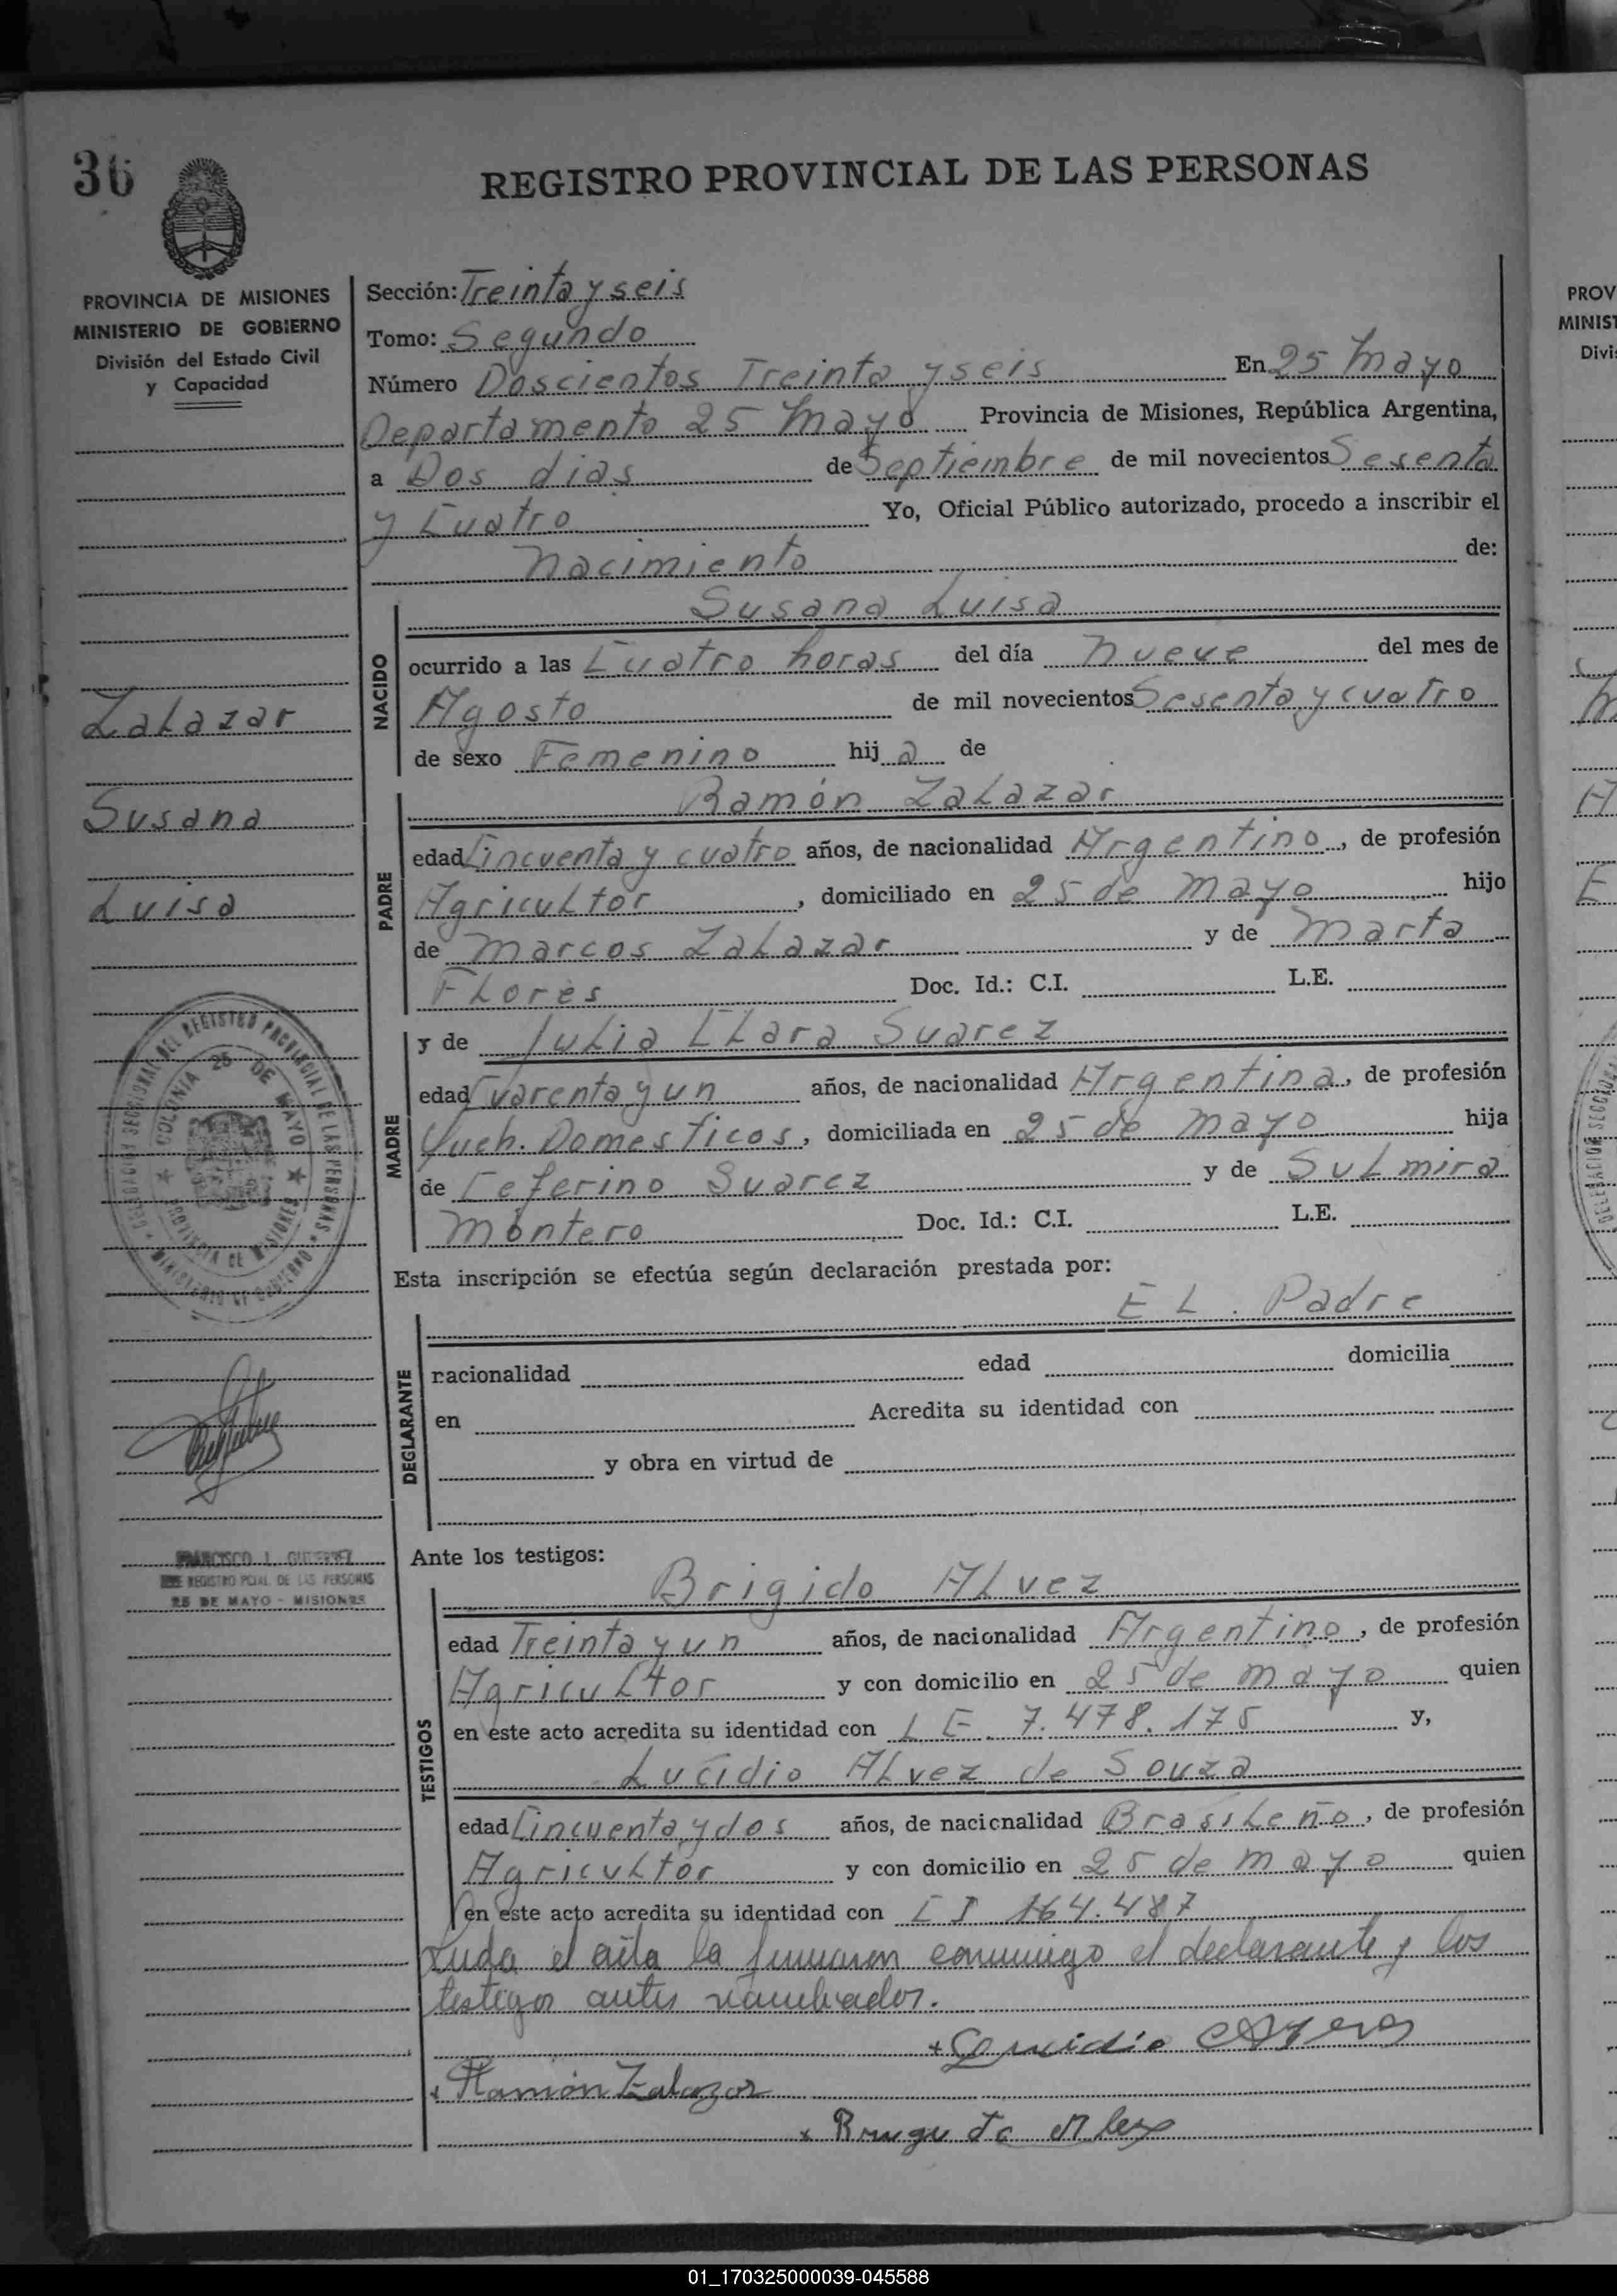 36
REGISTRO PROVINCIAL DE LAS PERSONAS
PROVINCIA DE MISIONES
MINISTERIO DE GOBIERNO
División del Estado Civil
y Capacidad
Zalazar
Susana
Luisa
DELEGACION SECCIONAL DEL REGISTRO PROVINCIAL DE LAS PERSONAS
MINISTERIO DE GOBIERNO
COLONIA 25 DE MAYO
PROVINCIA DE MISIONES
FRANCISCO L. GUTIERREZ
REGISTRO PCIAL. DE LAS PERSONAS
25 DE MAYO - MISIONES
Sección: Treinta y seis
Tomo: Segundo
Número Doscientos Treinta y seis En 25 Mayo
Departamento 25 Mayo Provincia de Misiones, República Argentina,
a Dos dias de Septiembre de mil novecientos Sesenta
y Cuatro Yo, Oficial Público autorizado, procedo a inscribir el
Nacimiento de:
NACIDO
Susana Luisa
ocurrido a las Cuatro horas del día Nueve del mes de
Agosto de mil novecientos Sesenta y cuatro
de sexo Femenino hija de
PADRE
Ramón Zalazar
edad Cincuenta y cuatro años, de nacionalidad Argentino, de profesión
Agricultor, domiciliado en 25 de Mayo hijo
de Marcos Zalazar y de Marta
Flores Doc. Id.: C.I. L.E.
MADRE
y de Julia Clara Suarez
edad Cuarenta y un años, de nacionalidad Argentina, de profesión
Queh. Domesticos, domiciliada en 25 de Mayo hija
de Ceferino Suarez y de Sulmira
Montero Doc. Id.: C.I. L.E.
Esta inscripción se efectúa según declaración prestada por:
DECLARANTE
EL. Padre
nacionalidad edad domicilia
en Acredita su identidad con
y obra en virtud de
Ante los testigos:
TESTIGOS
Brigido Alvez
edad Treinta y un años, de nacionalidad Argentino, de profesión
Agricultor y con domicilio en 25 de Mayo quien
en este acto acredita su identidad con L E. 7.478.175 y,
Lucidio Alvez de Souza
edad Cincuenta y dos años, de nacionalidad Brasileño, de profesión
Agricultor y con domicilio en 25 de Mayo quien
en este acto acredita su identidad con C I 164.487
Leida el acta la firmaron conmigo el declarante y los
testigos antes nombrados.
+ Ramón Zalazar
PROV
MINIST
Divi